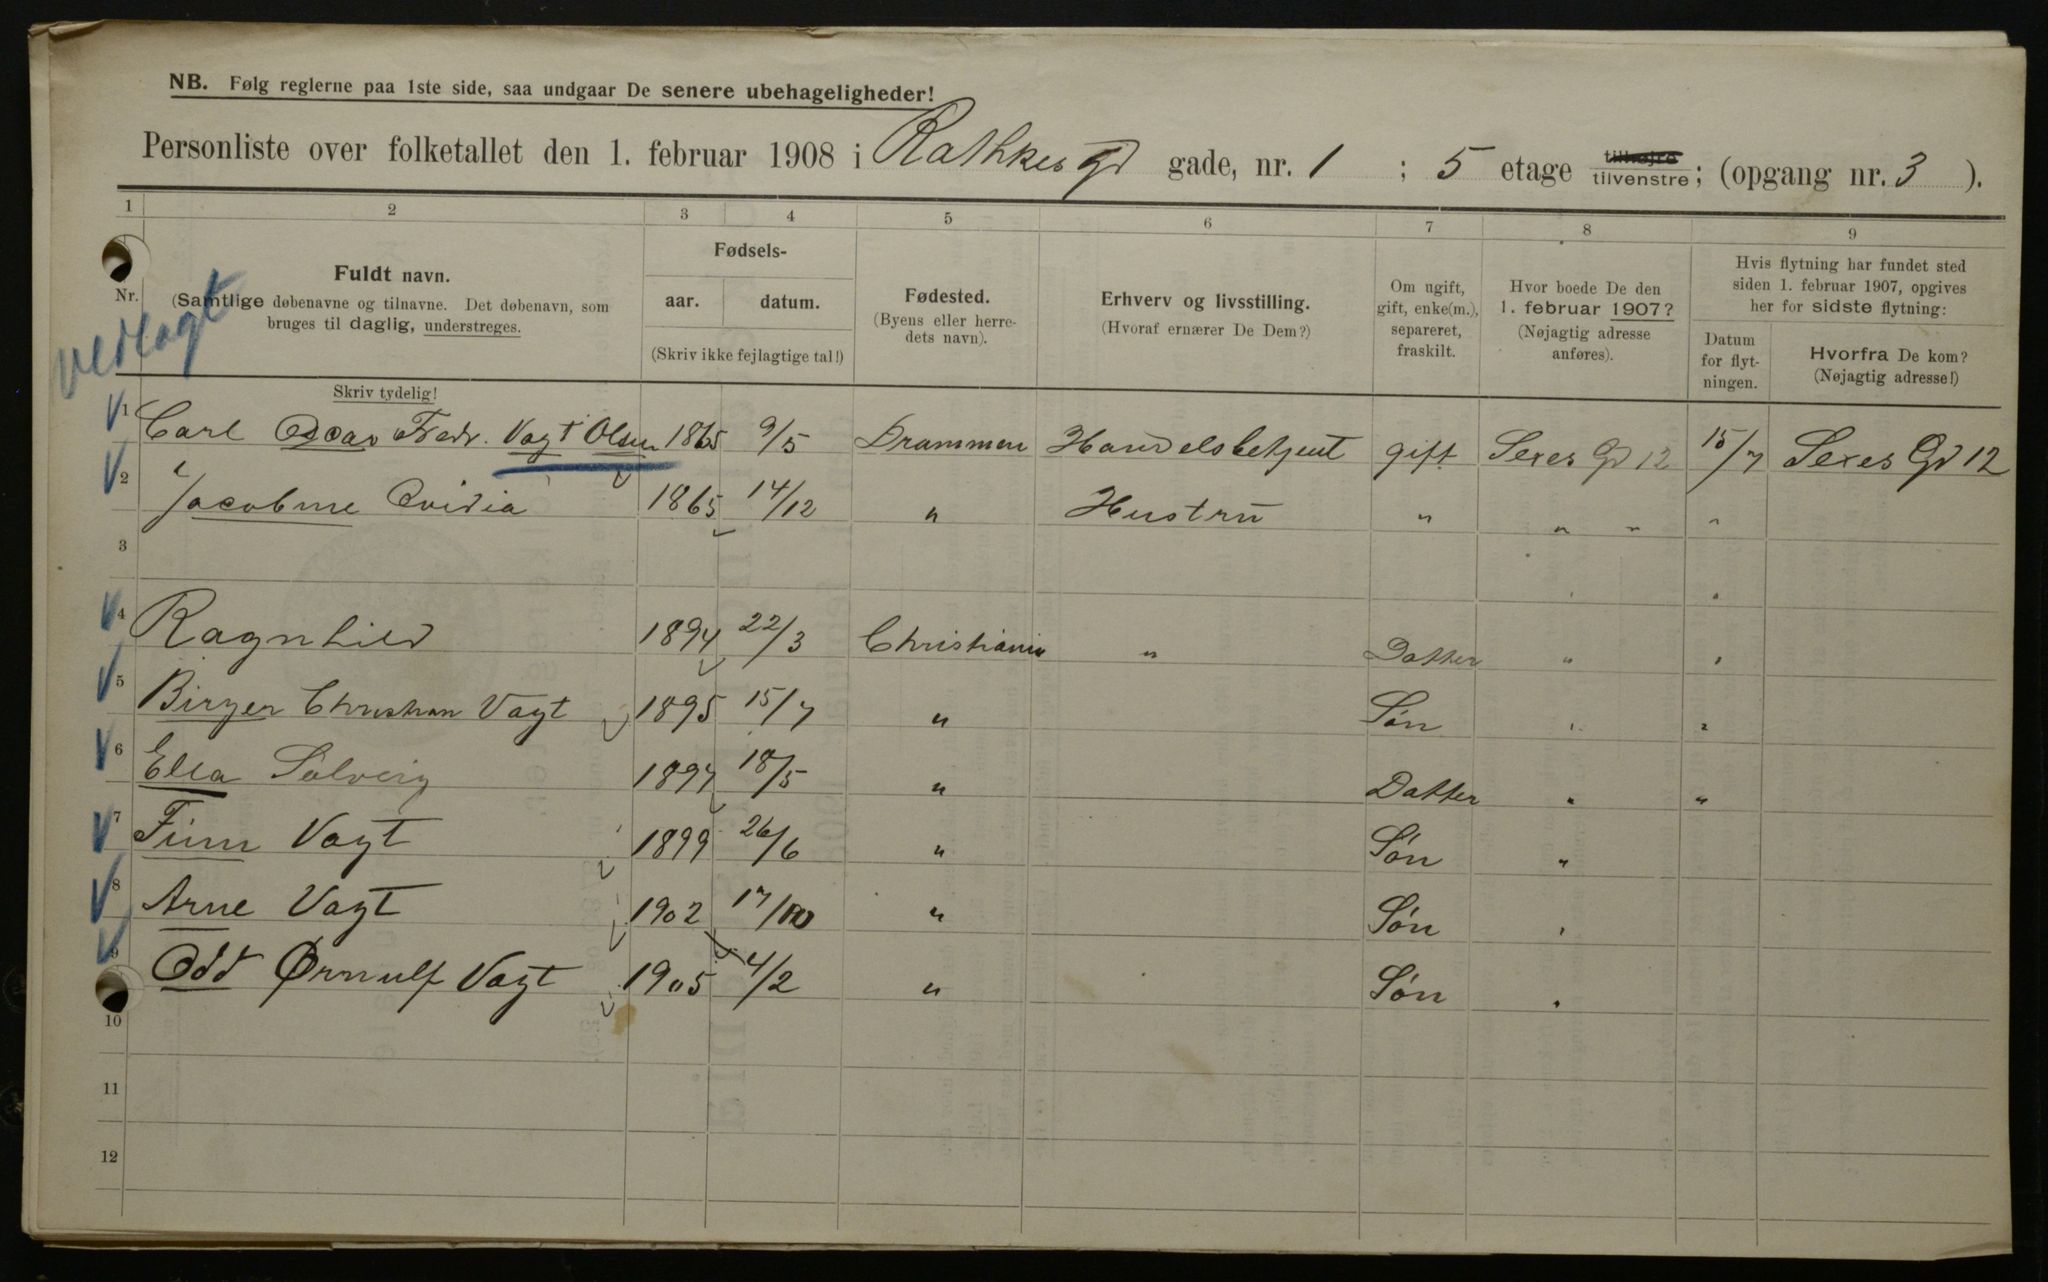 NB. Følg reglerne paa 1ste side, saa undgaar De senere ubehageligheder!
Personliste over folketallet den 1. februar 1908 i Rathkes Gd gade, nr. 1 ; 5 etage tilhøjre tilvenstre; (opgang nr. 3 ).
1 2 3 4 5 6 7 8 9
Nr.
Fuldt navn.
(Samtlige døbenavne og tilnavne. Det døbenavn, som
bruges til daglig, understreges.
Skriv tydelig!
Fødsels-
aar. datum.
(Skriv ikke fejlagtige tal!)
Fødested.
(Byens eller herre-
dets navn).
Erhverv og livsstilling.
(Hvoraf ernærer De Dem?)
Om ugift,
gift, enke(m.),
separeret,
fraskilt.
Hvor boede De den
1. februar 1907?
(Nøjagtig adresse
anføres).
Hvis flytning har fundet sted
siden 1. februar 1907, opgives
her for sidste flytning:
Datum
for flyt-
ningen.
Hvorfra De kom?
(Nøjagtig adresse!)
vedlagt
1 Carl Oscar Fredr. Vagt Olsen 1865 9/5 Drammen Handelsbetjent gift Sexes Gd 12 15/7 Sexes Gd 12
2 Jacobine Ovidia 1865 14/12 " Hustru " " " "
3
4 Ragnhild 1894 22/3 Christiania " Datter " "
5 Birger Christian Vagt 1895 15/7 " Søn " "
6 Ella Solveig 1897 18/5 " Datter " "
7 Finn Vagt 1899 26/6 " Søn "
8 Arne Vagt 1902 17/10 " Søn "
9 Odd Ørnulf Vagt 1905 4/2 " Søn "
10
11
12